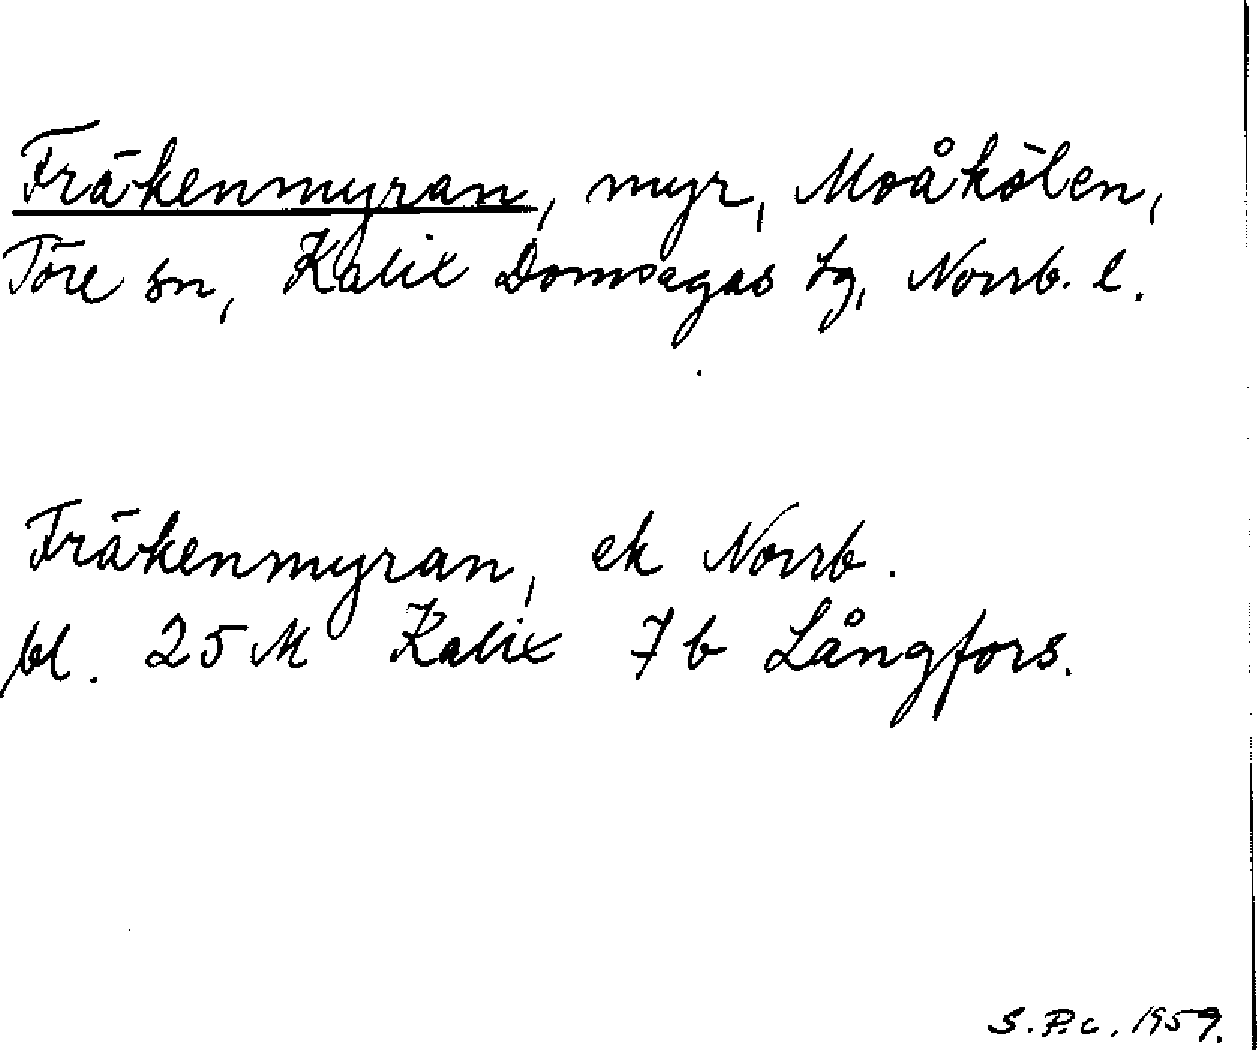 Fräkenmyran, myr, Moåkölen,
Töre sn, Kalix Domsagas tg, Norrb. l.
Fräkenmyran, ek Norrb.
bl. 25 M Kalix 7 b Långfors.
S. P. c. 1959.